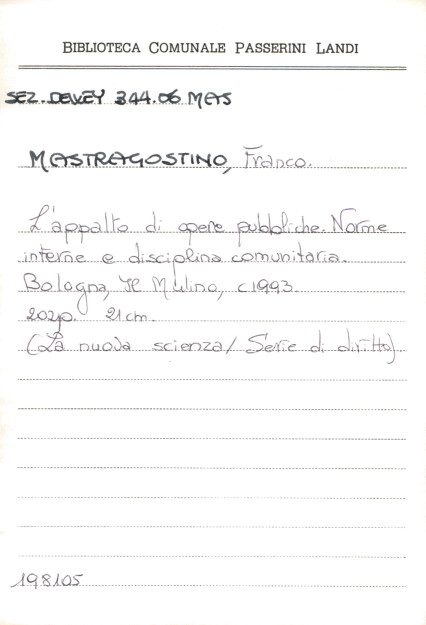 BIBLIOTECA COMUNALE PASSERINI LANDI
SEZ. DEWEY 344.06 MAS
MASTRAGOSTINO, Franco.
L'appalto di opere pubbliche. Norme
interne e disciplina comunitaria.
Bologna, Il Mulino, c1993.
202p. 21cm.
(La nuova scienza/ Serie di diritto)
198105